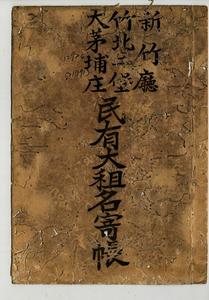 新竹廳
竹北二堡
大茅埔庄
民有大租名寄帳